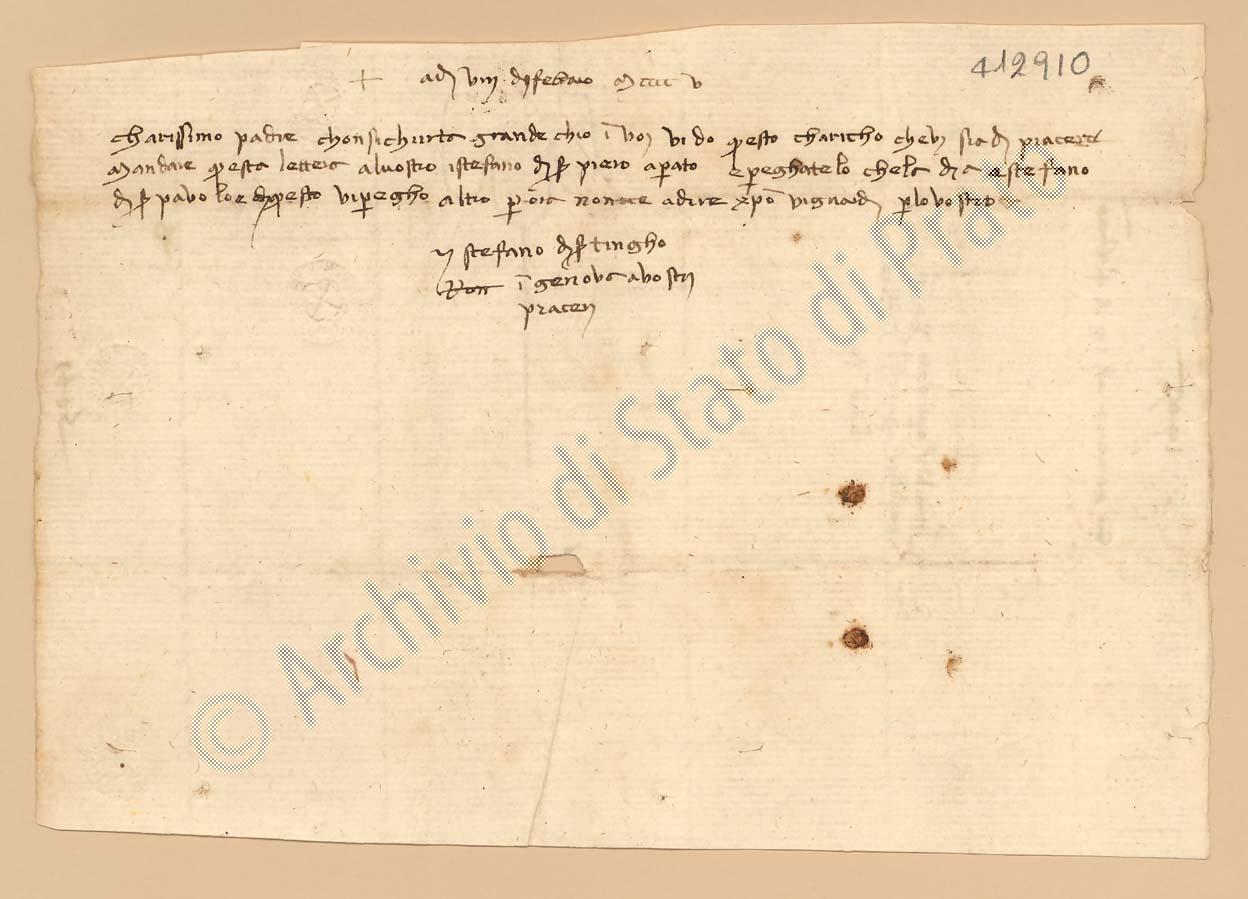 412910
+ adj viij dj febraio Mcccc v
charissimo padre chonsichurta grande chio ī voj vi do questo charicho chevj sia dj piacere
mandare questa lettera alvostro istefano dj ser piero aprato e preghatelo chela dia astefano
dj ser pavolo e djquesto vipregho altro per ora none adire xpō vighuardj perlovostro
stefano dj ser tingho
ī gienova avostrj
piacerj
© Archivio di Stato di Prato